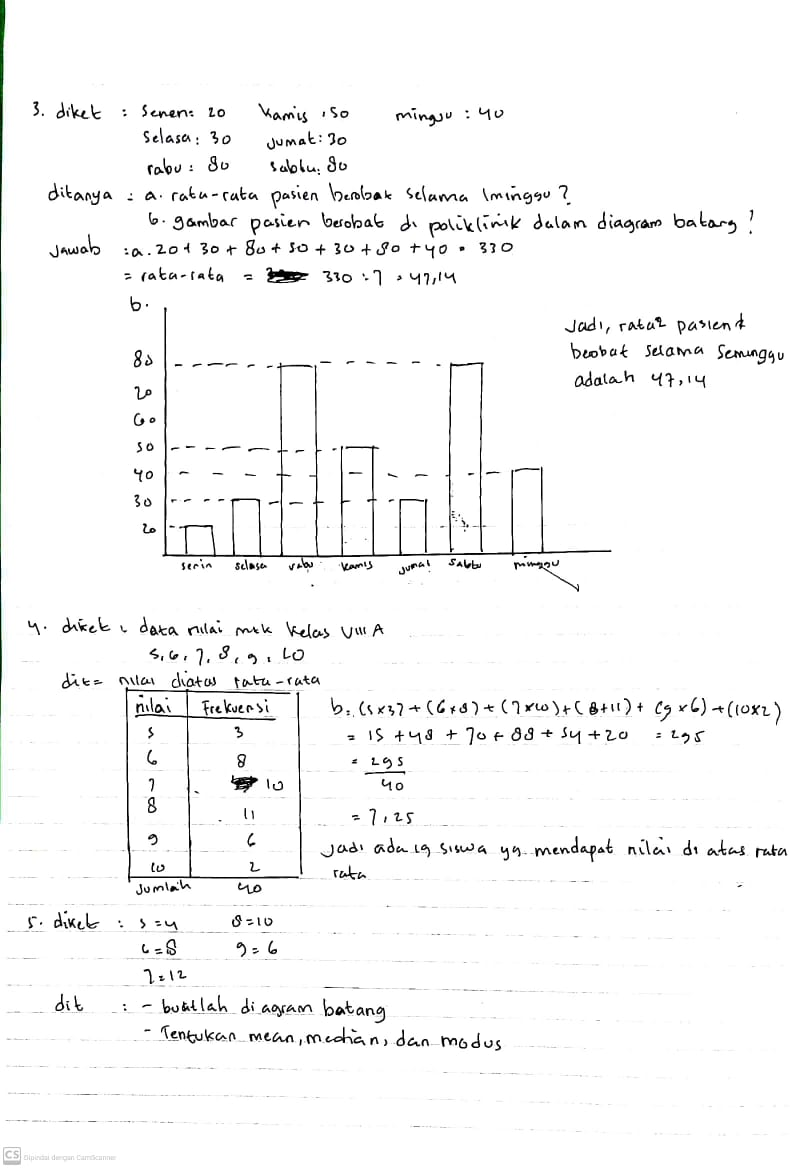 3. diket : Senen: 20 Kamis : 50 minggu : 40
Selasa: 30 Jumat: 30
rabu : 80 Sabtu: 80
ditanya : a. rata-rata pasien berobak selama 1minggu ?
b. gambar pasien berobat di poliklinik dalam diagram batang !
Jawab : a. 20 + 30 + 80 + 50 + 30 + 80 + 40 = 330
= rata-rata = 330 : 7 = 47,14
b.
Jadi, rata2 pasien
beobat selama seminggu
adalah 47,14
80
20
60
50
40
30
20
senin selasa rabu kamis jumat sabtu minggu
4. diket : data nilai mtk kelas VIII A
5, 6, 7, 8, 9, 10
dit = nilai diatas rata-rata
nilai Frekuensi
5 3
6 8
7 10
8 11
9 6
10 2
Jumlah 40
b: (5x3)+(6x8)+(7x10)+(8+11)+(9x6)+(10x2)
= 15 + 48 + 70 + 88 + 54 + 20 = 295
= 295
40
= 7,25
Jadi ada 19 siswa yg mendapat nilai di atas rata
rata
5. diket : 5 = 4 8 = 10
6 = 8 9 = 6
7 = 12
dit : - buatlah diagram batang
- Tentukan mean, median, dan modus
CS Dipindai dengan CamScanner